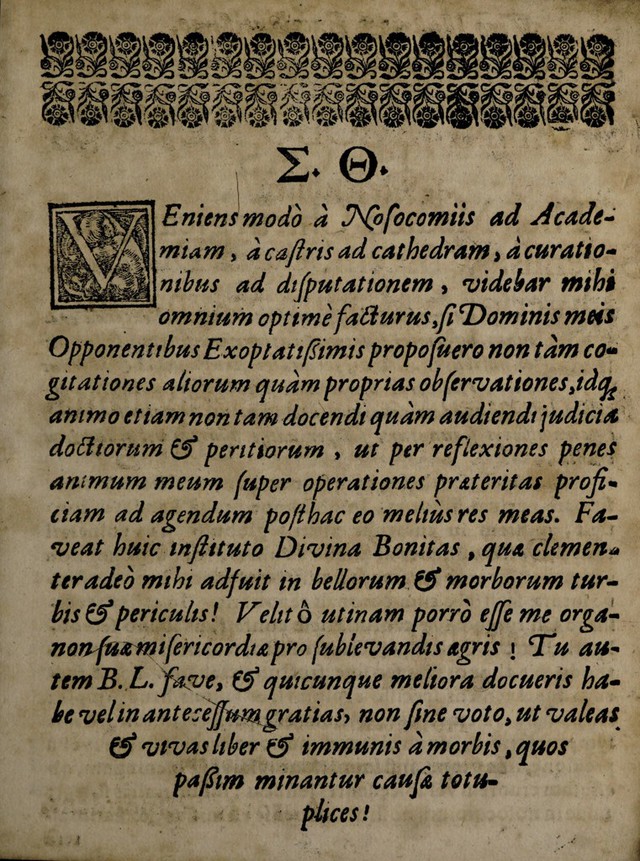 Σ. Θ.
VEniens modò à Noſocomiis ad Acade-
miam, à caſtris ad cathedram, à curatio-
nibus ad diſputationem, videbar mihi
omnium optimè facturus, ſi Dominis meis
Opponentibus Exoptatißimis propoſuero non tàm co-
gitationes aliorum quàm proprias obſervationes, idq;
animo etiam non tam docendi quàm audiendi judicia
doctiorum & peritiorum, ut per reflexiones penes
animum meum ſuper operationes præteritas profi-
ciam ad agendum poſthac eo meliùs res meas. Fa-
veat huic inſtituto Divina Bonitas, quæ clemen-
ter adeò mihi adfuit in bellorum & morborum tur-
bis & periculis! Velit ô utinam porrò eſſe me orga-
non ſuæ miſericordiæ pro ſublevandis ægris! Tu au-
tem B. L. fave, & quicunque meliora docueris ha-
be vel in anteceſſum gratias, non ſine voto, ut valeas
& vivas liber & immunis à morbis, quos
paßim minantur cauſæ totu-
plices!